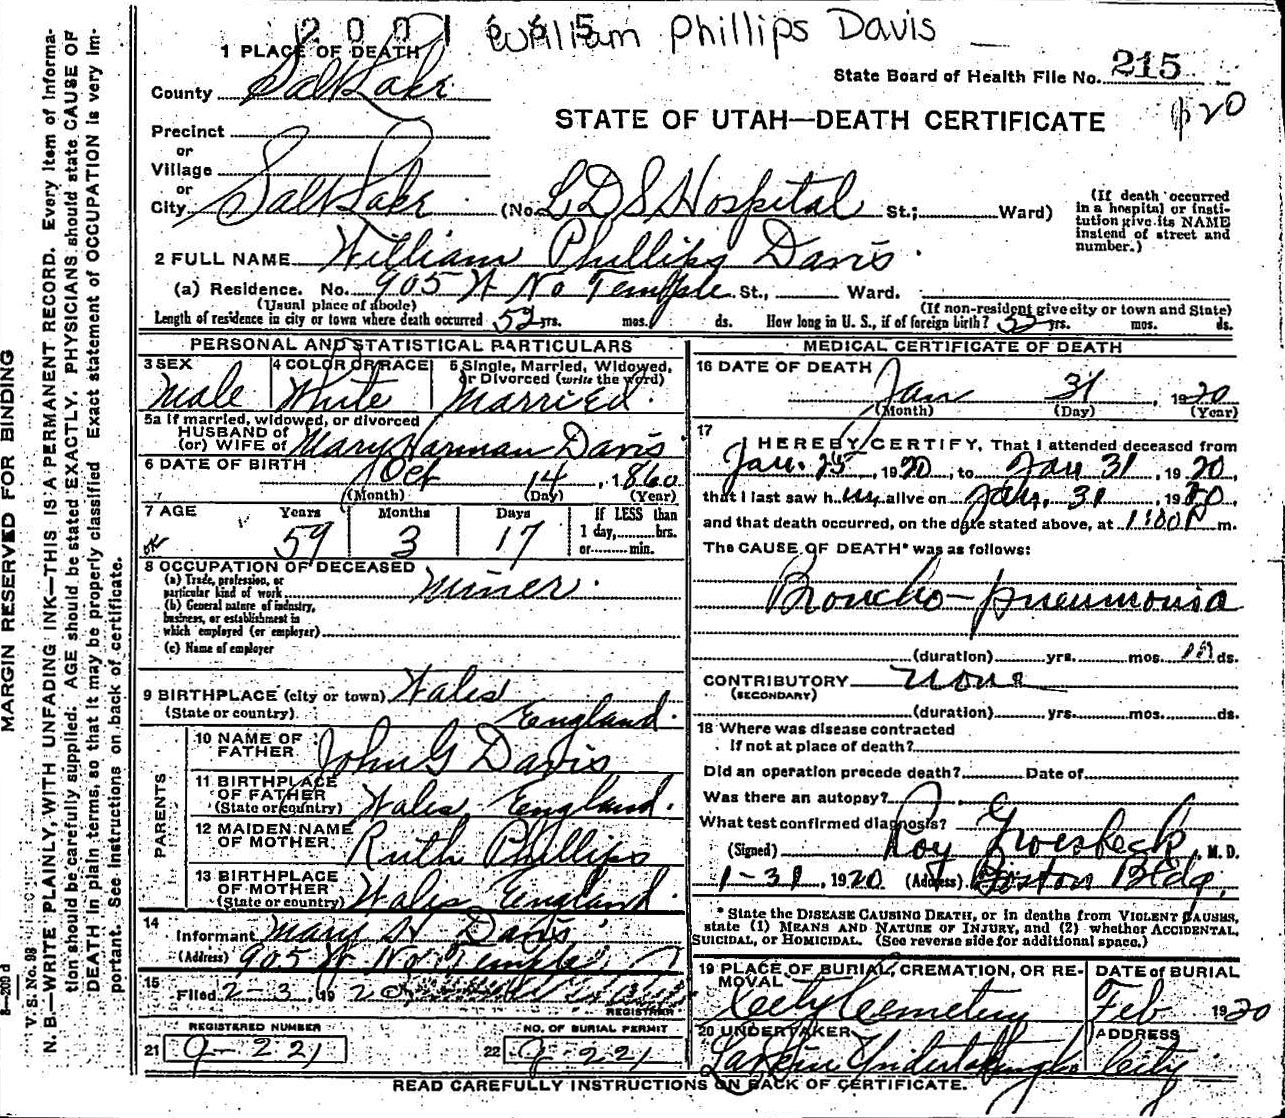 2001665
William Phillips Davis
1 PLACE OF DEATH
State Board of Health File No. 215
County Salt Lake
STATE OF UTAH—DEATH CERTIFICATE
Precinct
or
Village
or
City Salt Lake (No. L D S Hospital St.; Ward)
(If death occurred in a hospital or institution give its NAME instead of street and number.)
2 FULL NAME William Phillips Davis
(a) Residence. No. 905 W No Temple St., Ward.
(Usual place of abode) (If non-resident give city or town and State)
Length of residence in city or town where death occurred 52 yrs. mos. ds. How long in U. S., if of foreign birth? 52 yrs. mos. ds.
PERSONAL AND STATISTICAL PARTICULARS
3 SEX Male
4 COLOR OR RACE White
5 Single, Married, Widowed, or Divorced (write the word) Married
5a If married, widowed, or divorced
HUSBAND of
(or) WIFE of Mary Harman Davis
6 DATE OF BIRTH Oct 14, 1860
(Month) (Day) (Year)
7 AGE Years 59 Months 3 Days 17 If LESS than 1 day, hrs. or min.
8 OCCUPATION OF DECEASED
(a) Trade, profession, or particular kind of work Miner
(b) General nature of industry, business, or establishment in which employed (or employer)
(c) Name of employer
9 BIRTHPLACE (city or town) Wales
(State or country) England
PARENTS
10 NAME OF FATHER John G Davis
11 BIRTHPLACE OF FATHER (State or country) Wales England
12 MAIDEN NAME OF MOTHER Ruth Phillips
13 BIRTHPLACE OF MOTHER (State or country) Wales England
14 Informant Mary H Davis
(Address) 905 W No Temple
15 Filed 2-3, 1920
REGISTRAR
REGISTERED NUMBER
21 9-221
NO. OF BURIAL PERMIT
22 9-221
MEDICAL CERTIFICATE OF DEATH
16 DATE OF DEATH
Jan 31, 1920
(Month) (Day) (Year)
17
I HEREBY CERTIFY, That I attended deceased from
Jan. 25, 1920, to Jan 31, 1920,
that I last saw h im alive on Jan. 31, 1920,
and that death occurred, on the date stated above, at 1:00 P m.
The CAUSE OF DEATH* was as follows:
Broncho-pneumonia
(duration) yrs. mos. ds.
CONTRIBUTORY none
(SECONDARY)
(duration) yrs. mos. ds.
18 Where was disease contracted
If not at place of death?
Did an operation precede death? Date of
Was there an autopsy?
What test confirmed diagnosis?
(Signed) Roy Groesbeck, M. D.
1-31, 1920 (Address) Boston Bldg.
* State the DISEASE CAUSING DEATH, or in deaths from VIOLENT CAUSES,
state (1) MEANS AND NATURE OF INJURY, and (2) whether ACCIDENTAL,
SUICIDAL, or HOMICIDAL. (See reverse side for additional space.)
19 PLACE OF BURIAL, CREMATION, OR REMOVAL City Cemetery
DATE of BURIAL Feb 1920
20 UNDERTAKER Larkin Undertaking Co
ADDRESS City
READ CAREFULLY INSTRUCTIONS ON BACK OF CERTIFICATE.
MARGIN RESERVED FOR BINDING
N. B.—WRITE PLAINLY, WITH UNFADING INK—THIS IS A PERMANENT RECORD. Every item of information should be carefully supplied. AGE should be stated EXACTLY. PHYSICIANS should state CAUSE OF DEATH in plain terms, so that it may be properly classified. Exact statement of OCCUPATION is very important. See instructions on back of certificate.
V. S. No. 98